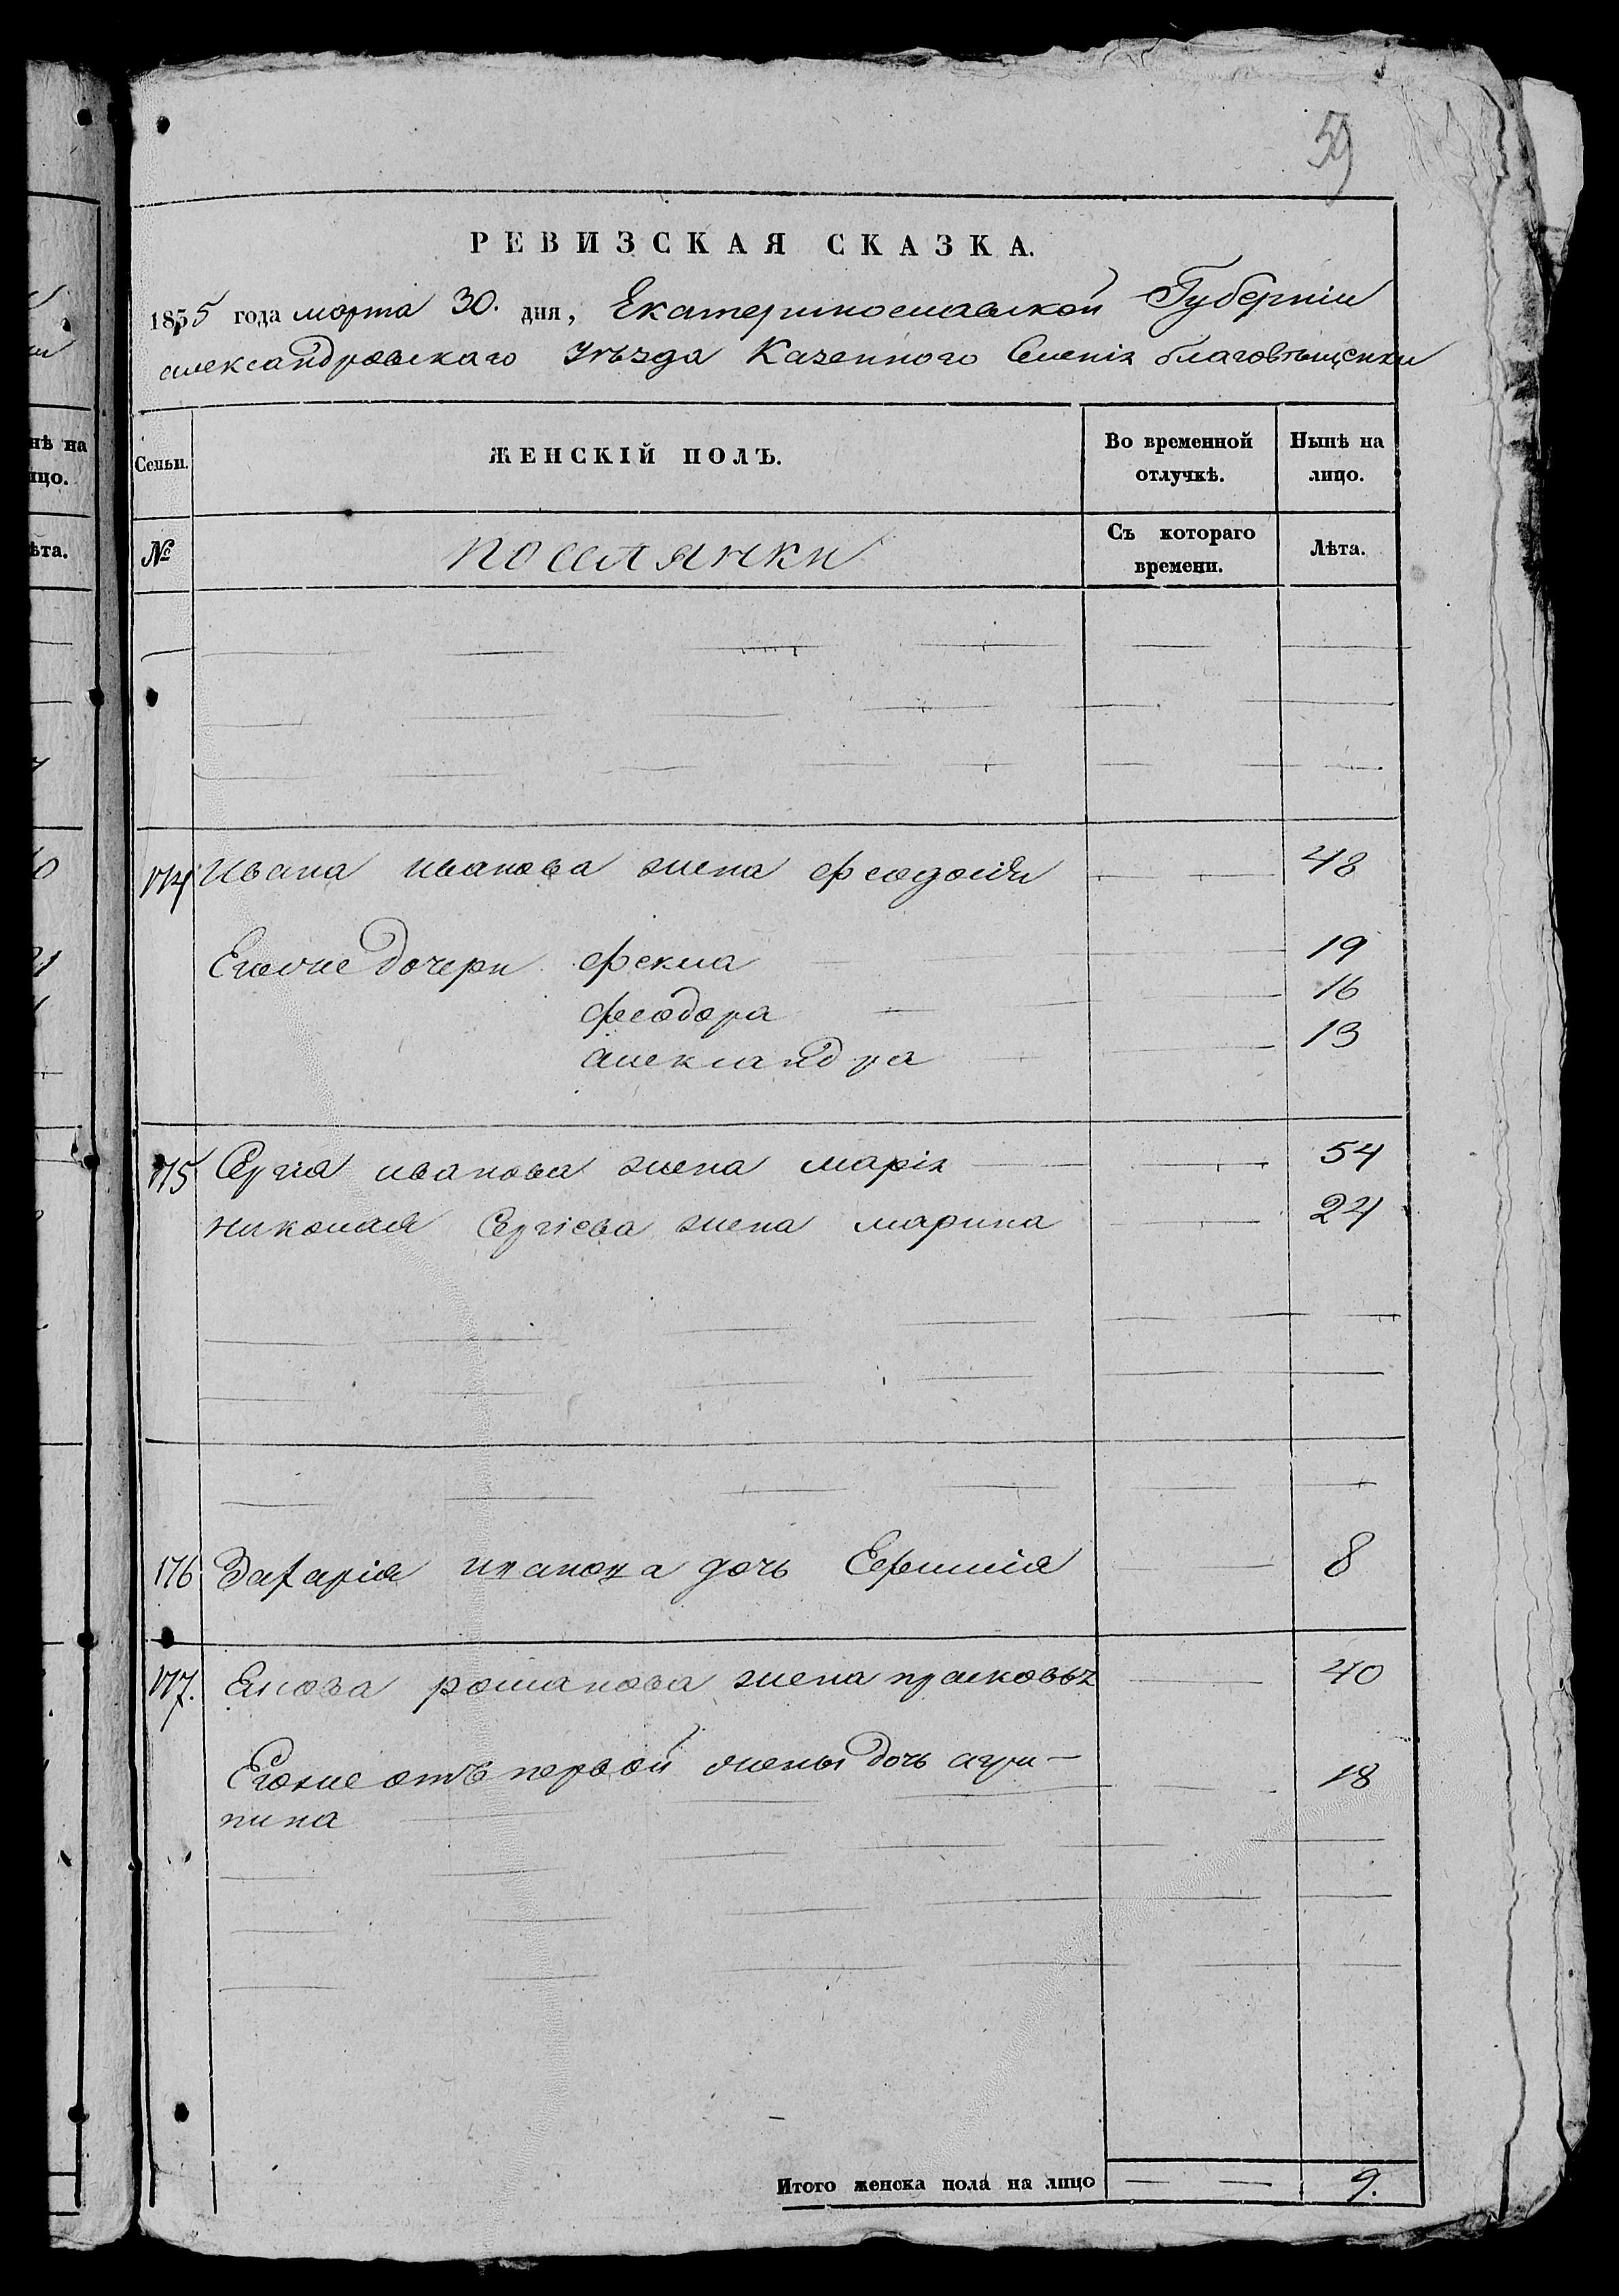 59
РЕВИЗСКАЯ СКАЗКА.
1855 года марта 30. дня, Екатеринославской Губерніи
александровскаго Уѣзда Казенного Селенія благовѣщенки
Семьи.
ЖЕНСКІЙ ПОЛЪ.
Во временной отлучкѣ.
Нынѣ на лицо.
№
поселянки
Съ котораго времени.
Лѣта.
174 Ивана иванова жена феодосія 48
Еговые дочери фекла 19
феодора 16
александра 13
175 Сергія иванова жена марія 54
николая Сергіева жена марина 24
176 Захарія иванова дочь Ефимія 8
177. романова жена прасковья 40
Еговые отъ первой жены дочь агри-
пина 18
Итого женска пола на лицо 9.